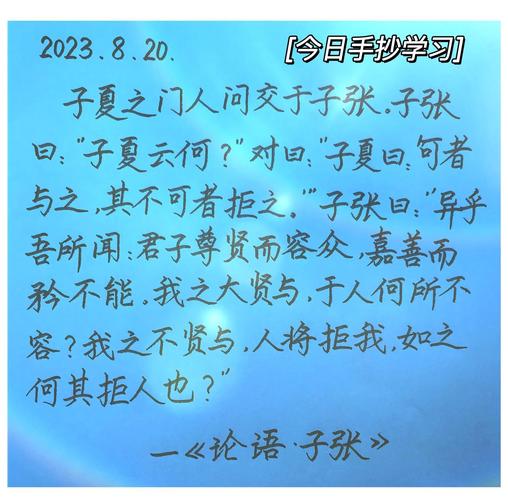 2023.8.20. [今日手抄学习]
子夏之门人问交于子张。子张
曰:"子夏云何?"对曰:"子夏曰:可者
与之,其不可者拒之。'"子张曰:"异乎
吾所闻:君子尊贤而容众,嘉善而
矜不能。我之大贤与,于人何所不
容?我之不贤与,人将拒我,如之
何其拒人也?"
—《论语·子张》